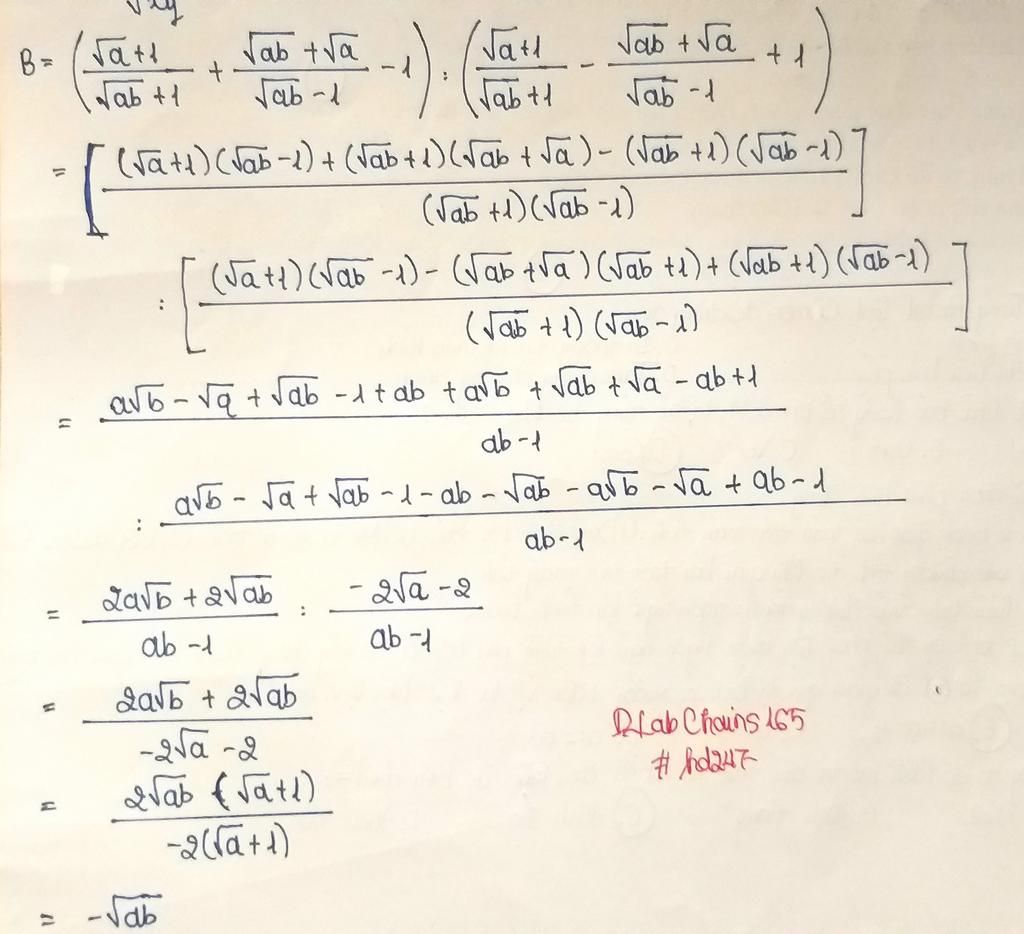 √xy
B = ( (√a+1)/(√ab+1) + (√ab+√a)/(√ab-1) - 1 ) : ( (√a+1)/(√ab+1) - (√ab+√a)/(√ab-1) + 1 )
= [ ((√a+1)(√ab-1)+(√ab+1)(√ab+√a)-(√ab+1)(√ab-1))/((√ab+1)(√ab-1)) ]
: [ ((√a+1)(√ab-1)-(√ab+√a)(√ab+1)+(√ab+1)(√ab-1))/((√ab+1)(√ab-1)) ]
= (a√b-√a+√ab-1+ab+a√b+√ab+√a-ab+1)/(ab-1)
: (a√b-√a+√ab-1-ab-√ab-a√b-√a+ab-1)/(ab-1)
= (2a√b+2√ab)/(ab-1) : (-2√a-2)/(ab-1)
= (2a√b+2√ab)/(-2√a-2)
= (2√ab(√a+1))/(-2(√a+1))
= -√ab
DLab Chains 165
# hd247